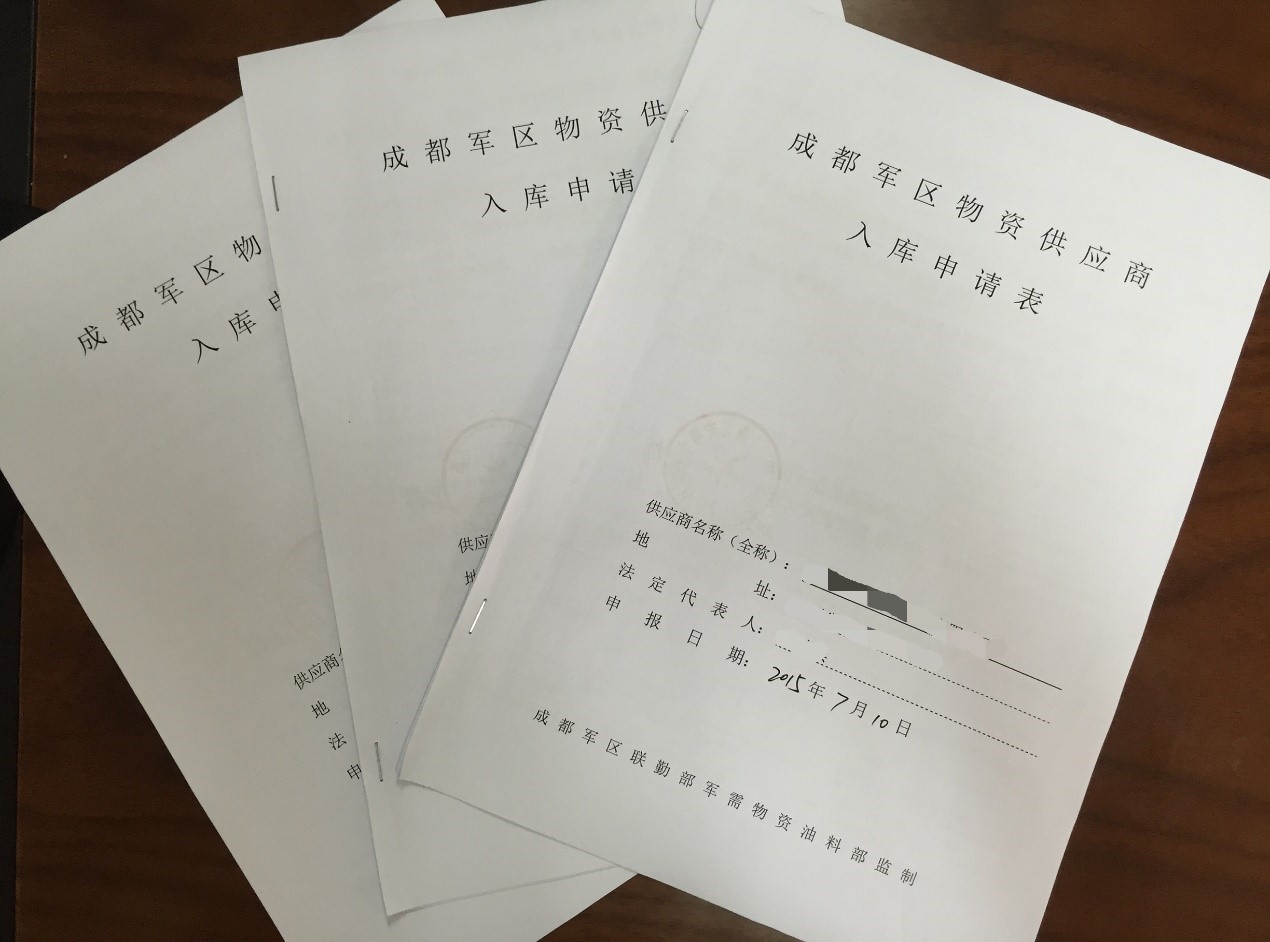 成都军区物
入库申
供应商名
地
法
申
成都军区物资供
入库申请
供应
地
成都军区物资供应商
入库申请表
供应商名称（全称）：
地址：
法定代表人：
申报日期：2015年7月10日
成都军区联勤部军需物资油料部监制